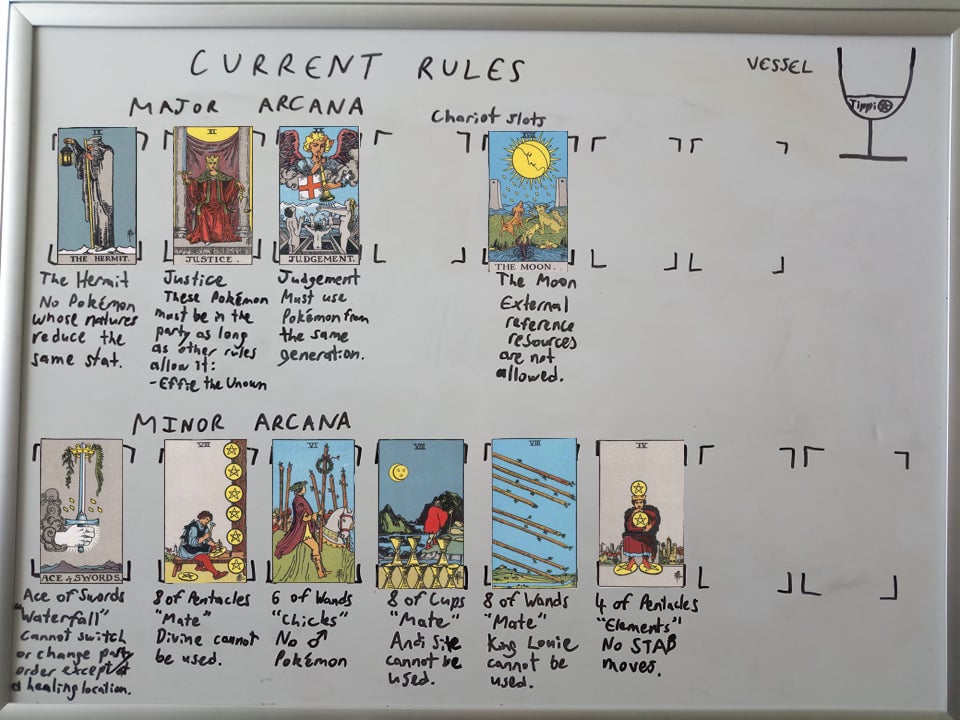 CURRENT RULES
VESSEL
Tippi
MAJOR ARCANA
Chariot slots
IX
THE HERMIT.
XI
JUSTICE.
JUDGEMENT.
THE MOON.
The Hermit
No Pokémon
whose natures
reduce the
same stat.
Justice
These Pokémon
must be in the
party as long
as other rules
allow it:
-Effie the Unown
Judgement
Must use
Pokémon from
the same
generation.
The Moon
External
reference
resources
are not
allowed.
MINOR ARCANA
ACE of SWORDS.
VIII
VI
VIII
VIII
IV
Ace of Swords
"Waterfall"
Cannot switch
or change party
order except at
a healing location.
8 of Pentacles
"Mate"
Divine cannot
be used.
6 of Wands
"Chicles"
No ♂
Pokémon
8 of Cups
"Mate"
Andi Site
cannot be
used.
8 of Wands
"Mate"
King Louie
cannot be
used.
4 of Pentacles
"Elements"
No STAB
moves.